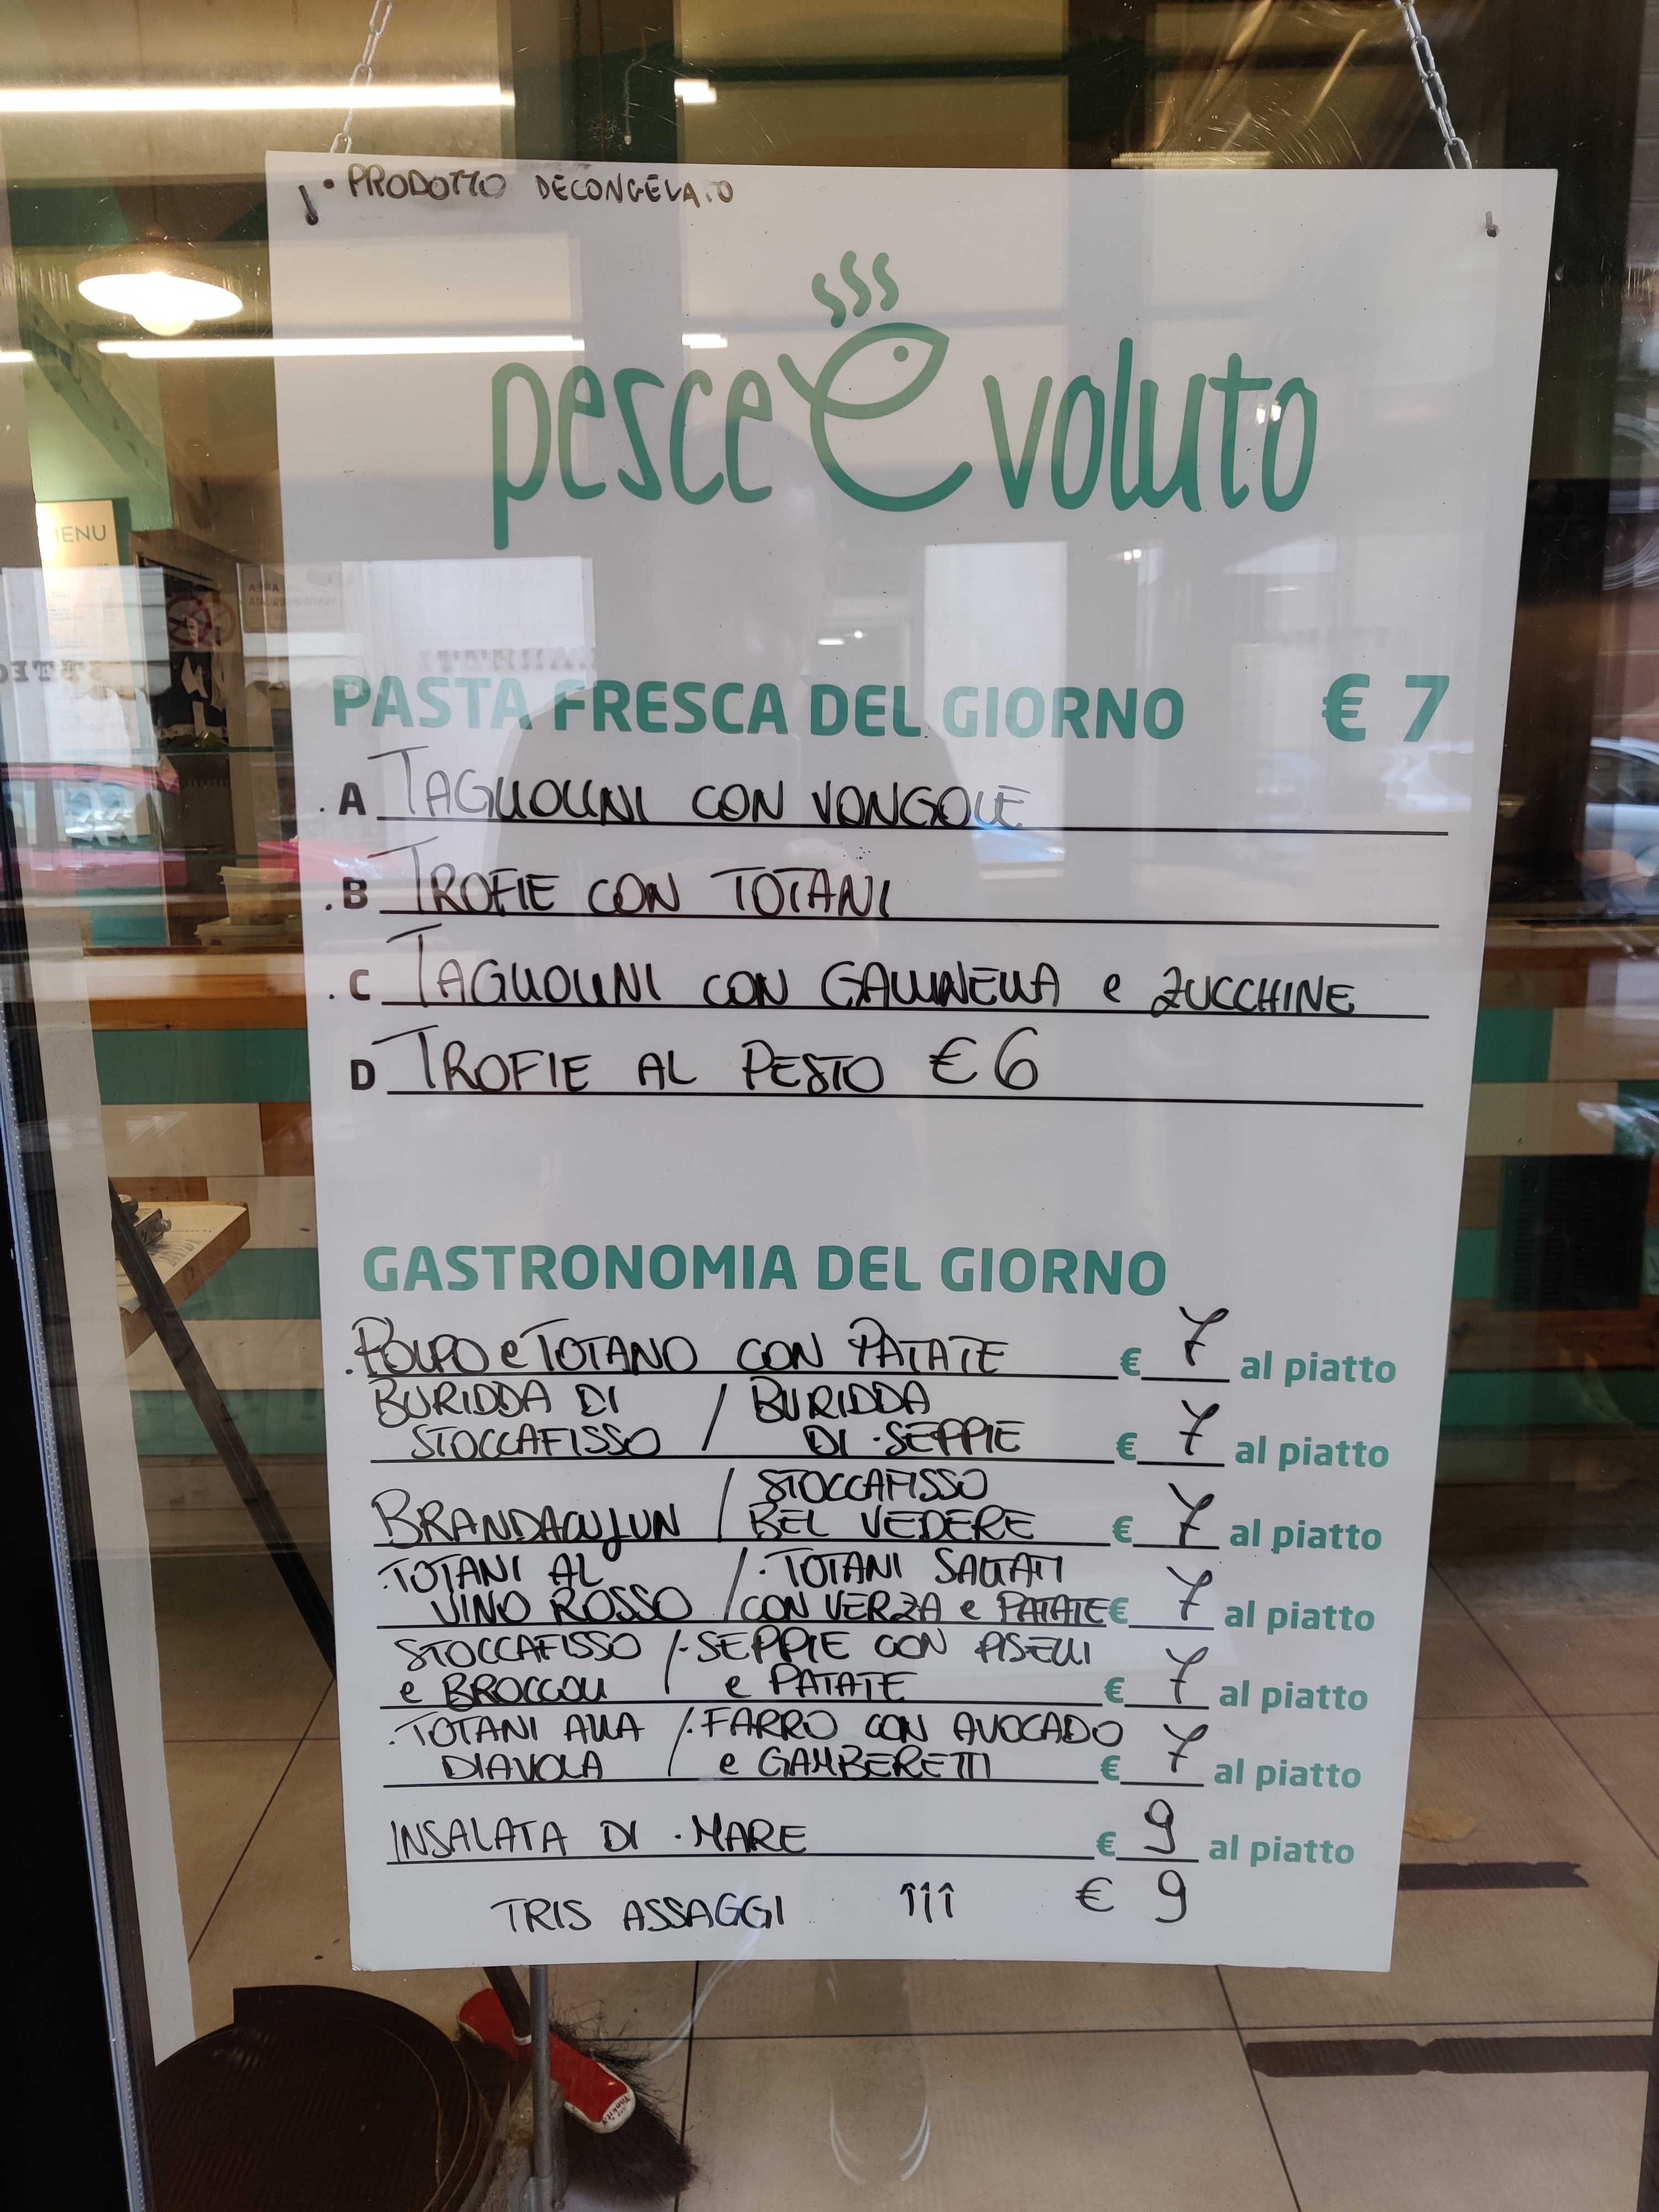 • PRODOTTO DECONGELATO
pesce e voluto
MENU
PASTA FRESCA DEL GIORNO € 7
. A TAGLIOLINI CON VONGOLE
. B TROFIE CON TOTANI
. C TAGLIOLINI CON GALLINELLA e ZUCCHINE
D TROFIE AL PESTO € 6
GASTRONOMIA DEL GIORNO
. POLPO e TOTANO CON PATATE € 7 al piatto
BURIDDA DI / BURIDDA
STOCCAFISSO DI · SEPPIE € 7 al piatto
BRANDACUJUN / STOCCAFISSO
BEL VEDERE € 7 al piatto
· TOTANI AL / · TOTANI SALTATI
VINO ROSSO CON VERZA e PATATE € 7 al piatto
STOCCAFISSO / · SEPPIE CON PISELLI
e BROCCOLI e PATATE € 7 al piatto
· TOTANI ALLA / · FARRO CON AVOCADO
DIAVOLA e GAMBERETTI € 7 al piatto
INSALATA DI · MARE € 9 al piatto
TRIS ASSAGGI ↑↑↑ € 9